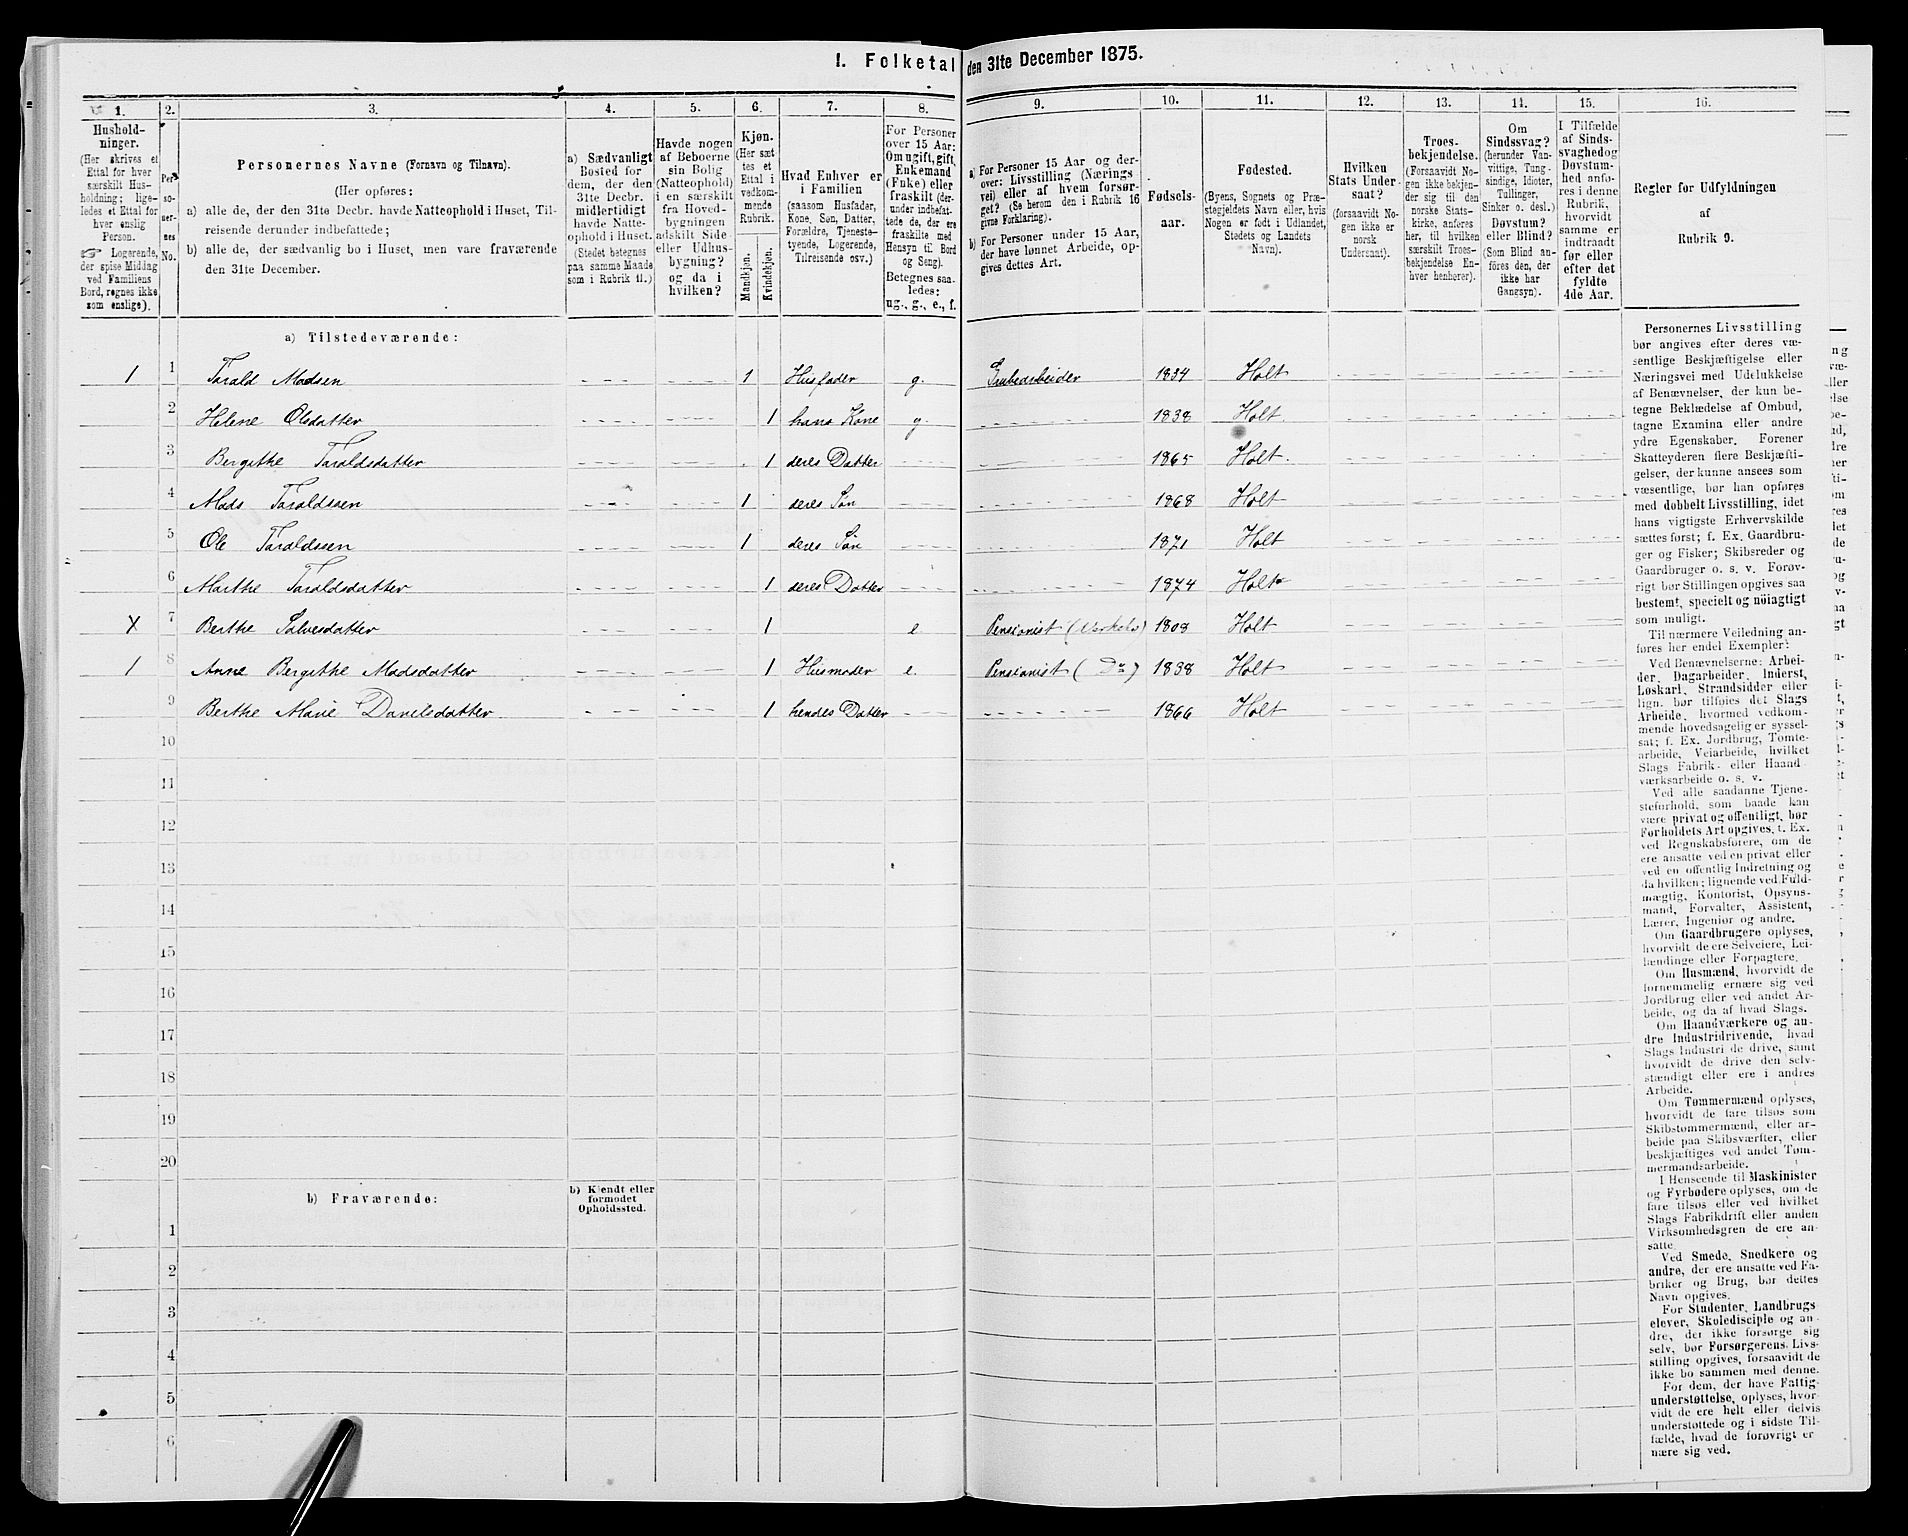 I. Folketal den 31te December 1875.
1. 2. 3. 4. 5. 6. 7. 8. 9. 10. 11. 12. 13. 14. 15. 16.
Hushold-
ninger.
(Her skrives et
Ettal for hver
særskilt Hus-
holdning; lige-
ledes et Ettal for
hver enslig
Person.
☞ Logerende,
der spise Middag
ved Familiens
Bord, regnes ikke
som enslige).
Per-
so-
ner-
nes
No.
Personernes Navne (Fornavn og Tilnavn).
(Her opføres:
a) alle de, der den 31te Decbr. havde Natteophold i Huset, Til-
reisende derunder indbefattede;
b) alle de, der sædvanlig bo i Huset, men vare fraværende
den 31te December.
a) Sædvanligt
Bosted for
dem, der den
31te Decbr.
midlertidigt
havde Natte-
ophold i Huset.
(Stedet betegnes
paa samme Maade
som i Rubrik 11.)
Havde nogen
af Beboerne
sin Bolig
(Natteophold)
i en særskilt
fra Hoved-
bygningen
adskilt Side
eller Udhus-
bygning?
og da i
hvilken?
Kjøn.
(Her sæt-
tes et
Ettal i
vedkom-
mende
Rubrik.
Mandkjøn.
Kvindekjøn.
Hvad Enhver er
i Familien
(saasom Husfader,
Kone, Søn, Datter,
Forældre, Tjeneste-
tyende, Logerende,
Tilreisende osv.)
For Personer
over 15 Aar:
Om ugift, gift,
Enkemand
(Enke) eller
fraskilt (der-
under indbefat-
tede de, der ere
fraskilte med
Hensyn til Bord
og Seng).
Betegnes saa-
ledes:
ug., g., e., f.
a) For Personer 15 Aar og der-
over: Livsstilling (Nærings
vei) eller af hvem forsør-
get? (Se herom den i Rubrik 16
givne Forklaring).
b) For Personer under 15 Aar,
der have lønnet Arbeide, op-
gives dettes Art.
Fødsels-
aar.
Fødested.
(Byens, Sognets og Præ-
stegjeldets Navn eller, hvis
Nogen er født i Udlandet,
Stedets og Landets
Navn).
Hvilken
Stats Under-
saat?
(forsaavidt No-
gen ikke er
norsk
Undersaat).
Troes-
bekjendelse.
(Forsaavidt No-
gen ikke bekjen-
der sig til den
norske Stats-
kirke, anføres
her, til hvilken
særskilt Troes-
bekjendelse En-
hver henhører).
Om
Sindssvag?
(herunder Van-
vittige, Tung-
sindige, Idioter,
Tullinger,
Sinker o. desl.)
Døvstum?
eller Blind?
(Som Blind an-
føres den, der
ikke har
Gangsyn).
I Tilfælde
af Sinds-
svaghed og
Døvstum-
hed anfø-
res i denne
Rubrik,
hvorvidt
samme er
indtraadt
før eller
efter det
fyldte
4de Aar.
Regler for Udfyldningen
af
Rubrik 9.
a) Tilstedeværende:
1 1 Tarald Madsen 1 Husfader g. Grubearbeider 1834 Holt
2 Helene Olsdatter 1 hans Kone g. 1838 Holt
3 Bergithe Taraldsdatter 1 deres Datter 1865 Holt
4 Mads Taraldssen 1 deres Søn 1868 Holt
5 Ole Taraldssen 1 deres Søn 1871 Holt
6 Marthe Taraldsdatter 1 deres Datter 1874 Holt
X 7 Berthe Salvesdatter 1 e Pensionist (Verkets) 1808 Holt
1 8 Anne Bergithe Madsdatter 1 Husmoder e. Pensionist (Do) 1838 Holt
9 Berthe Marie Danielsdatter 1 hendes Datter 1866 Holt
10
11
12
13
14
15
16
17
18
19
20
b) Fraværende:
b) Kjendt eller
formodet
Opholdssted.
1
2
3
4
5
6
Personernes Livsstilling
bør angives efter deres væ-
sentlige Beskjæftigelse eller
Næringsvei med Udelukkelse
af Benævnelser, der kun be-
tegne Beklædelse af Ombud,
tagne Examina eller andre
ydre Egenskaber. Forener
Skatteyderen flere Beskjæfti-
gelser, der kunne ansees som
væsentlige, bør han opføres
med dobbelt Livsstilling, idet
hans vigtigste Erhvervskilde
sættes først; f. Ex. Gaardbru-
ger og Fisker; Skibsreder og
Gaardbruger o. s. v. Forøv-
rigt bør Stillingen opgives saa
bestemt, specielt og nøiagtigt
som muligt.
Til nærmere Veiledning an-
føres her endel Exempler:
Ved Benævnelserne: Arbei-
der, Dagarbeider, Inderst,
Løskarl, Strandsidder eller
lign. bør tilføies det Slags
Arbeide, hvormed vedkom-
mende hovedsagelig er syssel-
sat; f. Ex. Jordbrug, Tomte-
arbeide, Veiarbeide, hvilket
Slags Fabrik- eller Haand-
værksarbeide o. s. v.
Ved alle saadanne Tjene-
steforhold, som baade kan
være privat og offentligt, bør
Forholdets Art opgives, t. Ex.
ved Regnskabsførere, om de
ere ansatte ved en privat eller
ved en offentlig Indretning og
da hvilken; lignende ved Fuld-
mægtig, Kontorist, Opsyns-
mand, Forvalter, Assistent,
Lærer, Ingeniør og andre.
Om Gaardbrugere oplyses,
hvorvidt de ere Selveiere, Lei-
lændinge eller Forpagtere.
Om Husmænd, hvorvidt de
fornemmelig ernære sig ved
Jordbrug eller ved andet Ar-
beide, og da af hvad Slags.
Om Haandværkere og an-
dre Industridrivende, hvad
Slags Industri de drive, samt
hvorvidt de drive den selv-
stændigt eller ere i andres
Arbeide.
Om Tømmermænd oplyses,
hvorvidt de fare tilsøs som
Skibstømmermænd, eller ar-
beide paa Skibsværfter, eller
beskjæftiges ved andet Tøm-
mermandsarbeide.
I Henseende til Maskinister
og Fyrbødere oplyses, om de
fare tilsøs eller ved hvilket
Slags Fabrikdrift eller anden
Virksomhedsgren de ere an-
satte.
Ved Smede, Snedkere og
andre, der ere ansatte ved Fa-
briker og Brug, bør dettes
Navn opgives.
For Studenter, Landbrugs
elever, Skoledisciple og an-
dre, der ikke forsørge sig
selv, bør Forsørgerens Livs-
stilling opgives, forsaavidt de
ikke bo sammen med denne.
For dem, der have Fattig-
understøttelse, oplyses, hvor-
vidt de ere helt eller delvis
understøttede og i sidste Til-
fælde, hvad de forøvrigt er
nære sig ved.